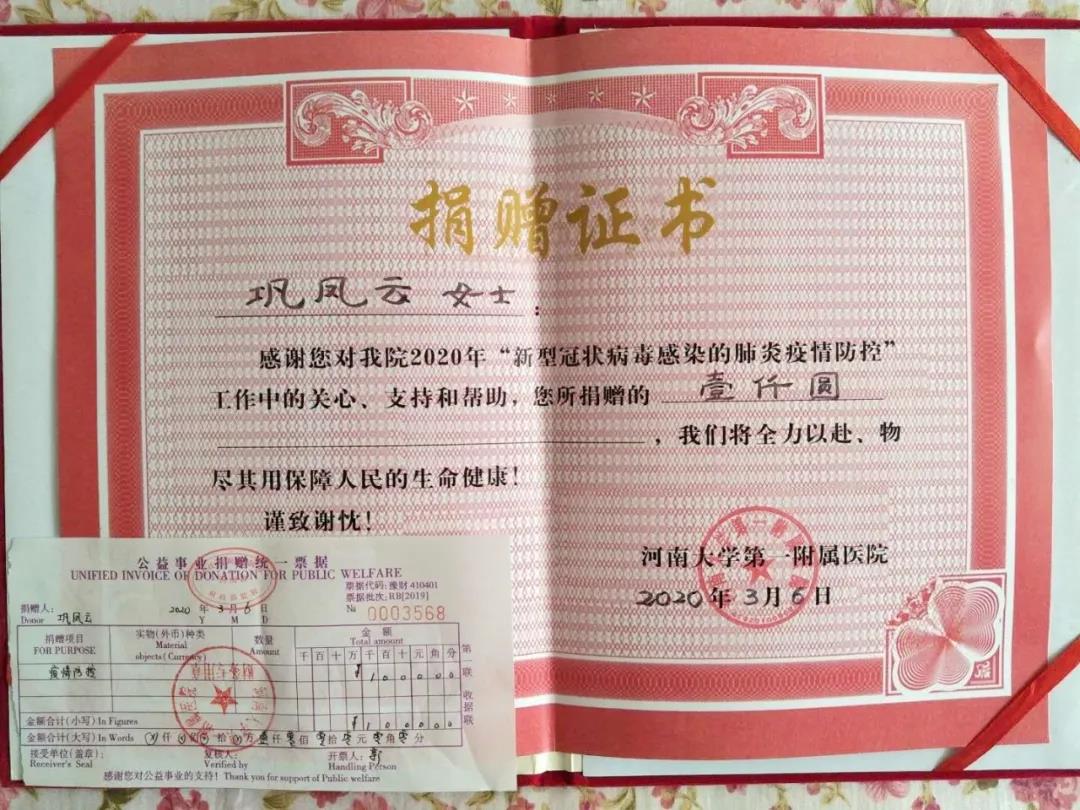 捐赠证书
巩凤云 女士：
感谢您对我院2020年“新型冠状病毒感染的肺炎疫情防控”
工作中的关心、支持和帮助，您所捐赠的 壹仟圆
，我们将全力以赴、物
尽其用保障人民的生命健康！
谨致谢忱！
河南大学第一附属医院
2020年3月6日
公益事业捐赠统一票据
UNIFIED INVOICE OF DONATION FOR PUBLIC WELFARE
票据代码：豫财 410401
票据批次：RB[2019]
捐赠人：
Donor 巩凤云
2020 年 3 月 6 日
Y M D
№ 0003568
捐赠项目 实物(外币)种类 数量 金额
FOR PURPOSE Material objects(Currency) Amount Total amount
千百十万千百十元角分
疫情防控 ¥100000
第
联
收
据
联
金额合计(小写) In Figures ¥100000
金额合计(大写) In Words 仟 佰 拾 万 壹仟 零佰 零拾 零元 零角 零分
接受单位(盖章)： 复核人： 开票人：
Receiver's Seal Verified by Handling Person
感谢您对公益事业的支持！Thank you for support of Public welfare
财务专用章